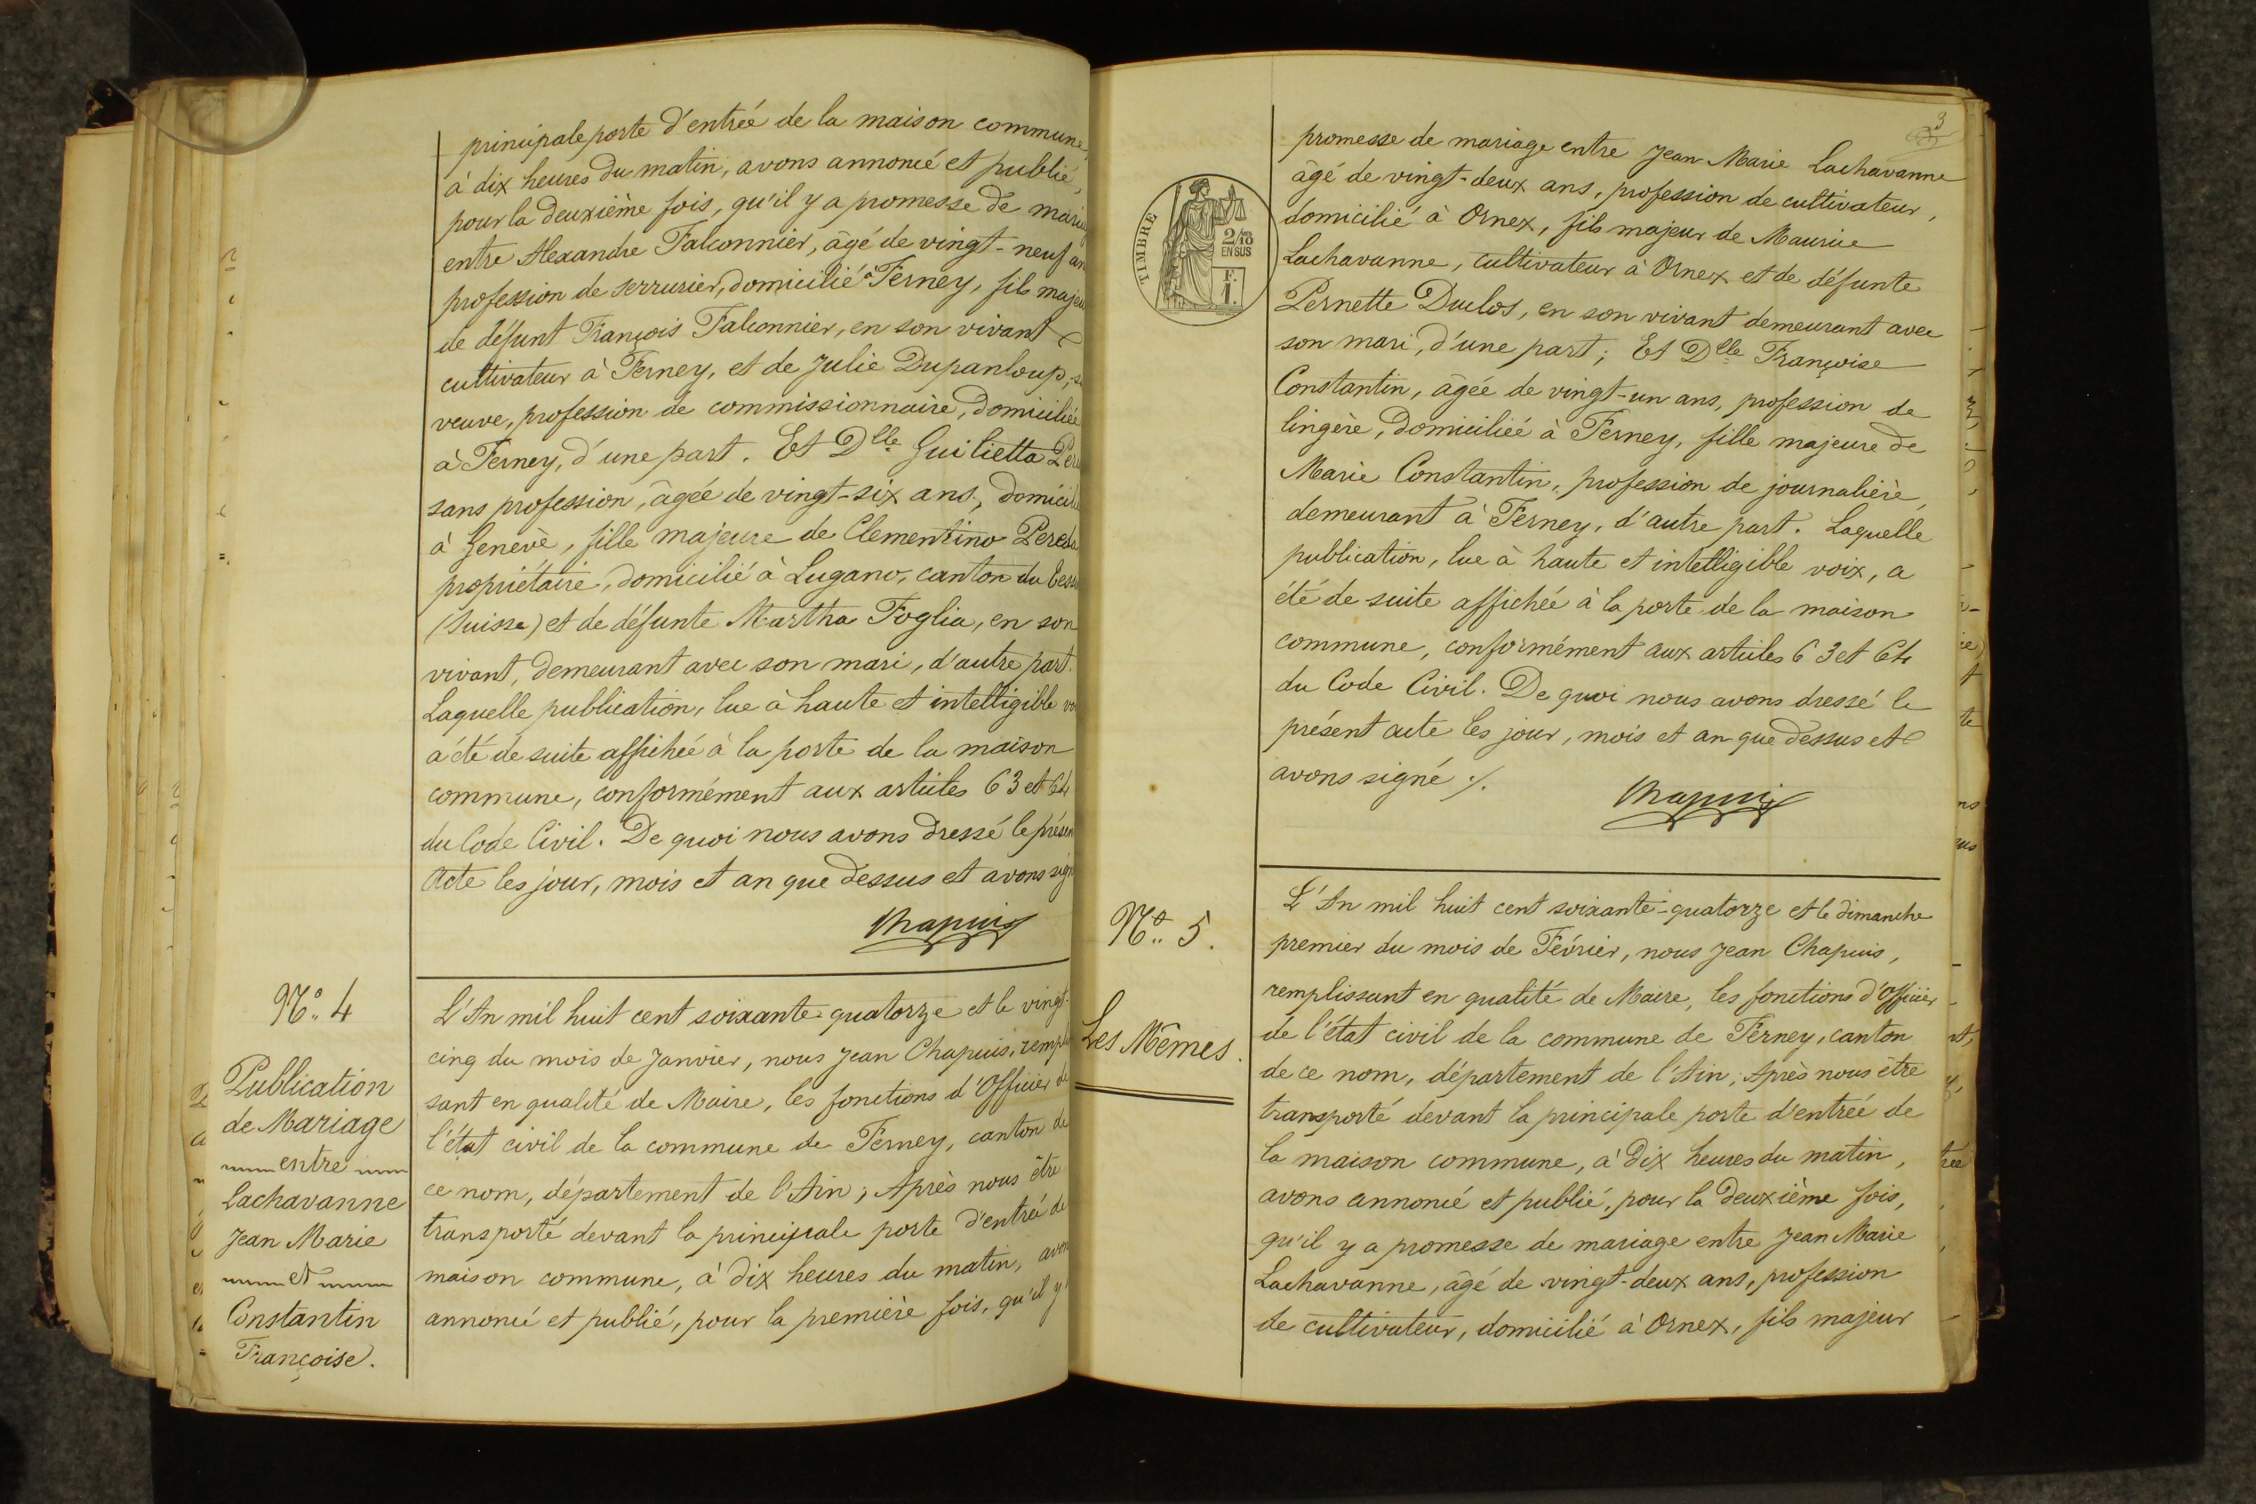 principale porte d'entrée de la maison commune,
à dix heures du matin, avons annoncé et publié,
pour la deuxième fois, qu'il y a promesse de
entre Alexandre Falconnier, âgé de vingt-neuf
profession de serrurier, domicilié à Ferney, fils
de défunt François Falconnier, en son vivant
cultivateur à Ferney, et de Julie Dupanloup,
veuve, profession de commissionnaire, domiciliée
à Ferney, d'une part. Et Dlle Guilietta
sans profession, âgée de vingt-six ans,
à Genève, fille majeure de Clementino Pereda
propriétaire, domicilié à Lugano, canton du
(Suisse) et de défunte Martha Foglia, en son
vivant, demeurant avec son mari, d'autre part.
Laquelle publication, lue à haute et intelligible
a été de suite affichée à la porte de la maison
commune, conformément aux articles 63 et 64
du Code Civil. De quoi nous avons dressé le
Acte les jour, mois et an que dessus et avons
Chapuis
N° 4
Publication
de Mariage
entre
Lachavanne
Jean Marie
et
Constantin
Françoise.
L'An mil huit cent soixante-quatorze et le vingt-
cinq du mois de Janvier, nous Jean Chapuis,
sant en qualité de Maire, les fonctions d'Officier de
l'état civil de la commune de Ferney, canton de
ce nom, département de l'Ain; Après nous être
transporté devant la principale porte d'entrée de
maison commune, à dix heures du matin,
annoncé et publié, pour la première fois, qu'il y
3
TIMBRE
2/10
EN SUS
F.
1.
promesse de mariage entre Jean Marie Lachavanne
âgé de vingt-deux ans, profession de cultivateur,
domicilié à Ornex, fils majeur de Maurice
Lachavanne, cultivateur à Ornex et de défunte
Pernette Duclos, en son vivant demeurant avec
son mari, d'une part; Et Dlle Françoise
Constantin, âgée de vingt-un ans, profession de
lingère, domiciliée à Ferney, fille majeure de
Marie Constantin, profession de journalière,
demeurant à Ferney, d'autre part. Laquelle
publication, lue à haute et intelligible voix, a
été de suite affichée à la porte de la maison
commune, conformément aux articles 63 et 64
du Code Civil. De quoi nous avons dressé le
présent acte les jour, mois et an que dessus et
avons signé ./.
Chapuis
N° 5.
Les Mêmes.
L'An mil huit cent soixante-quatorze et le dimanche
premier du mois de Février, nous Jean Chapuis,
remplissant en qualité de Maire, les fonctions d'Officier
de l'état civil de la commune de Ferney, canton
de ce nom, département de l'Ain; Après nous être
transporté devant la principale porte d'entrée de
la maison commune, à dix heures du matin,
avons annoncé et publié, pour la deuxième fois,
qu'il y a promesse de mariage entre Jean Marie
Lachavanne, âgé de vingt-deux ans, profession
de cultivateur, domicilié à Ornex, fils majeur